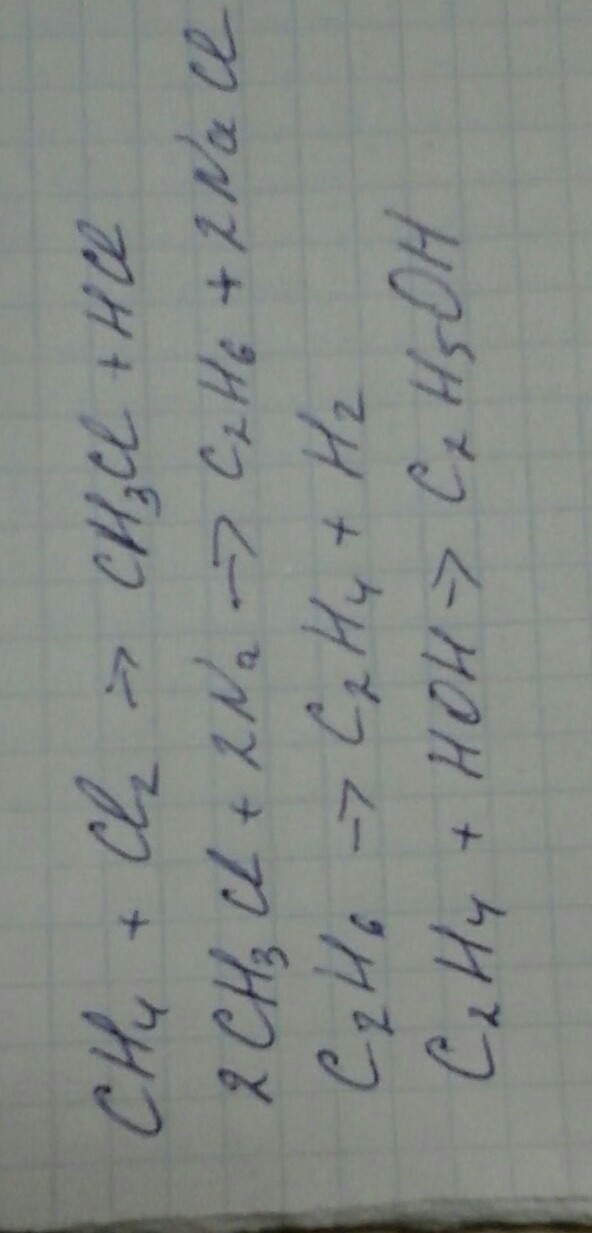 CH₄ + Cl₂ → CH₃Cl + HCl
2CH₃Cl + 2Na → C₂H₆ + 2NaCl
C₂H₆ → C₂H₄ + H₂
C₂H₄ + HOH → C₂H₅OH